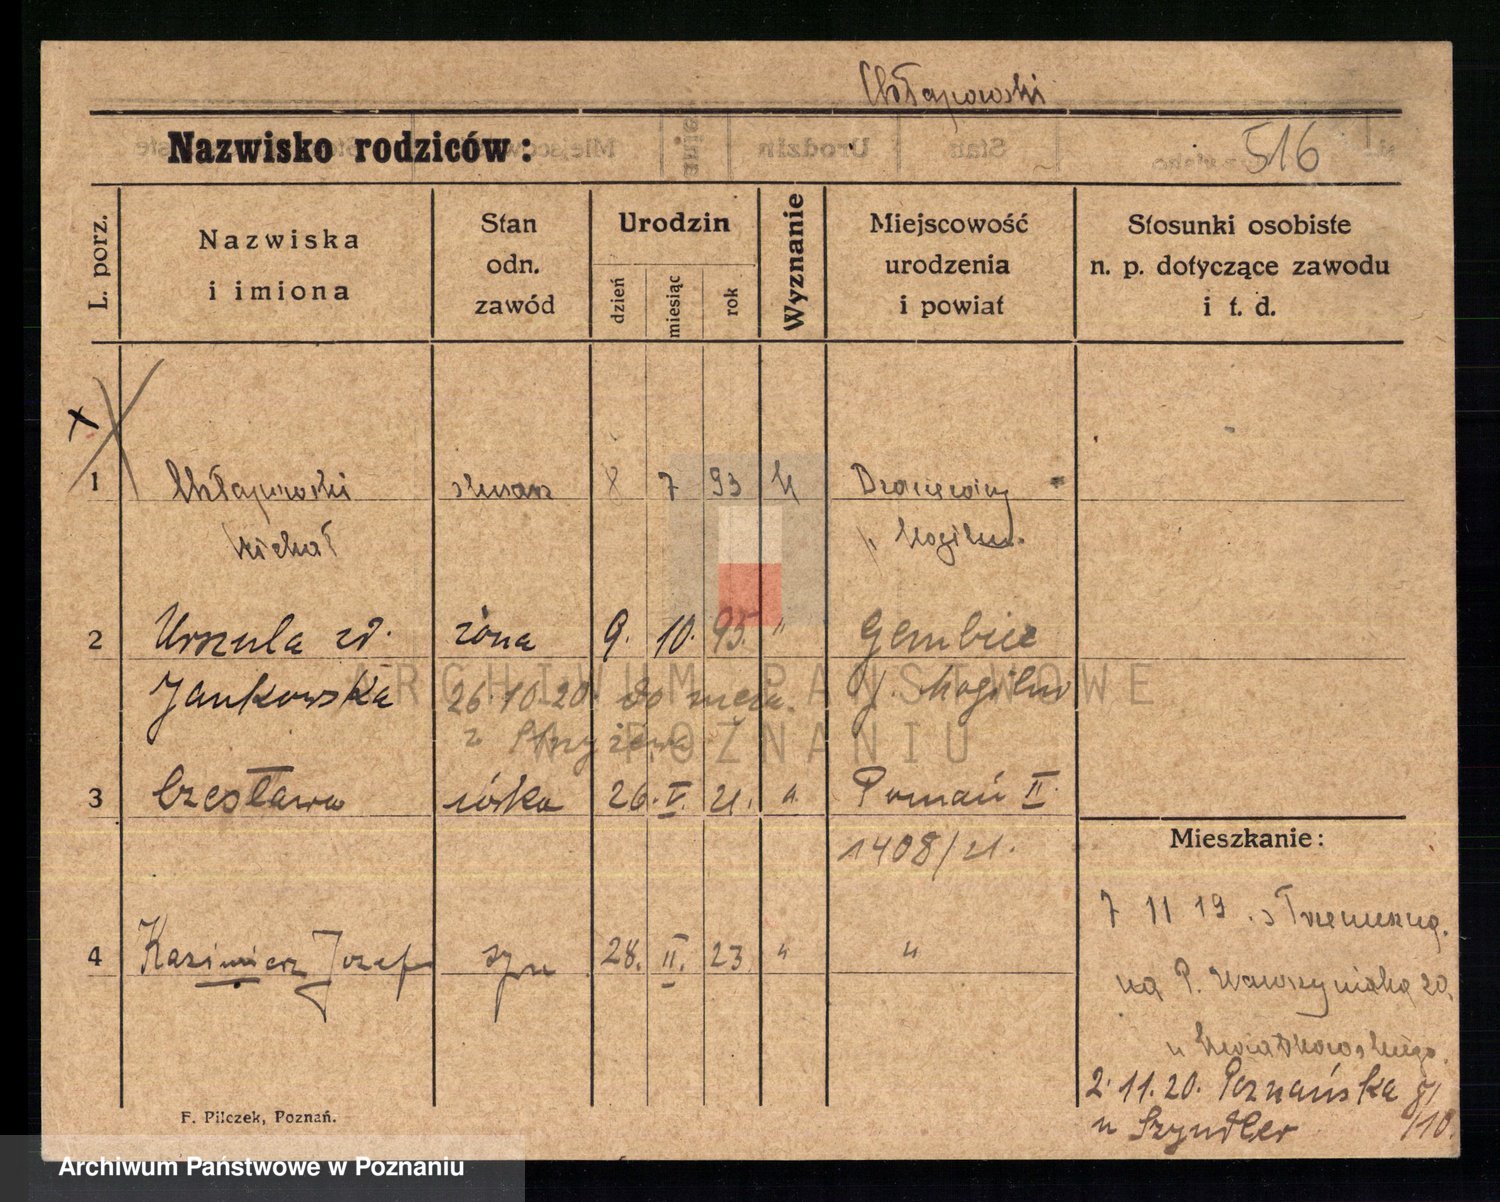 Chłapowski
Nazwisko rodziców:
516
L. porz.
Nazwiska
i imiona
Stan
odn.
zawód
Urodzin
dzień
miesiąc
rok
Wyznanie
Miejscowość
urodzenia
i powiat
Stosunki osobiste
n. p. dotyczące zawodu
i t. d.
1 Chłapowski 7 93
Michał
2 Urszula zd. żona 9. 10. 95. " Gembice
Jankowska 26.10.20. do męża. p. Mogilno
z
3 Czesława córka 26. V. 21. " Poznań II
1408/21.
Mieszkanie:
7 11 19 z Trzemeszna.
na P. Wawrzyniaka 20,
u Kwiatkowskiego.
4 Kazimierz Józef syn 28. II. 23 " "
2.11.20. Poznańska
u Szyndler /10.
F. Pilczek, Poznań.
ARCHIWUM PAŃSTWOWE
W POZNANIU
Archiwum Państwowe w Poznaniu